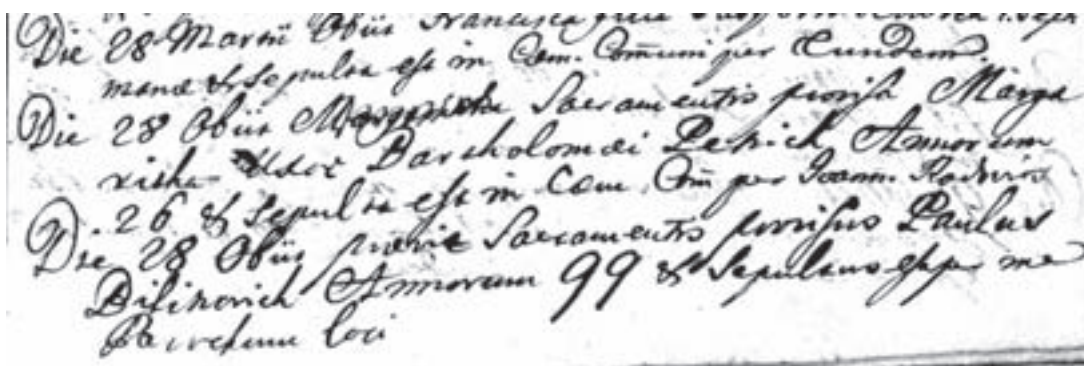 Die 28 Martii Obiit Francisca
mane & sepulta est in Cem. Com̄uni per Eundem.
Die 28 Obiit Sacramentis provisa Marga
ritha Uxor Bartholomæi Petrich Annorum
26 & sepulta est in Cæm. Com̄ per Joann.
Die 28 Obiit Sacramentis provisus Paulus
Bilinovich Annorum 99 & Sepultus est per me
loci